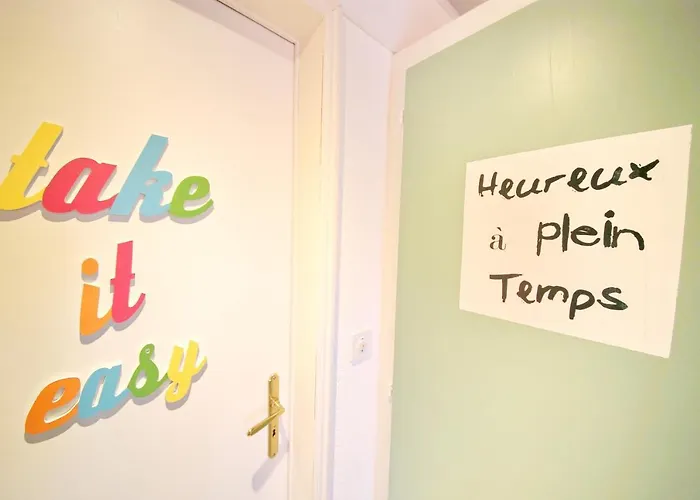 take
it
easy
Heureux
à plein
Temps